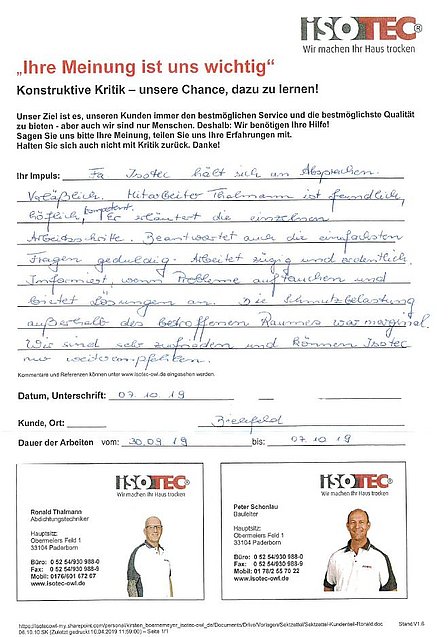 ISOTEC®
Wir machen Ihr Haus trocken
„Ihre Meinung ist uns wichtig“
Konstruktive Kritik – unsere Chance, dazu zu lernen!
Unser Ziel ist es, unseren Kunden immer den bestmöglichen Service und die bestmöglichste Qualität
zu bieten - aber auch wir sind nur Menschen. Deshalb: Wir benötigen Ihre Hilfe!
Sagen Sie uns bitte Ihre Meinung, teilen Sie uns Ihre Erfahrungen mit.
Halten Sie sich auch nicht mit Kritik zurück. Danke!
Ihr Impuls: Fa Isotec hält sich an Absprachen.
Verläßlich. Mitarbeiter Thalmann ist freundlich,
höflich, kompetent. Er erläutert die einzelnen
Arbeitsschritte. Beantwortet auch die einfachsten
Fragen geduldig. Arbeitet zügig und ordentlich.
Informiert, wenn Probleme auftauchen und
bietet Lösungen an. Die Schmutzbelastung
außerhalb des betroffenen Raumes war marginal.
Wir sind sehr zufrieden und können Isotec
nur weiterempfehlen.
Kommentare und Referenzen können unter www.isotec-owl.de eingesehen werden.
Datum, Unterschrift: 07.10.19
Kunde, Ort: Bielefeld
Dauer der Arbeiten vom: 30.09.19 bis: 07.10.19
ISOTEC®
Wir machen Ihr Haus trocken
Ronald Thalmann
Abdichtungstechniker
Hauptsitz:
Obermeiers Feld 1
33104 Paderborn
Büro: 0 52 54/930 988-0
Fax: 0 52 54/930 988-9
Mobil: 0176/601 672 67
www.isotec-owl.de
ISOTEC®
Wir machen Ihr Haus trocken
Peter Schonlau
Bauleiter
Hauptsitz:
Obermeiers Feld 1
33104 Paderborn
Büro: 0 52 54/930 988-0
Fax: 0 52 54/930 988-9
Mobil: 0 178/2 55 70 22
www.isotec-owl.de
Stand V1.6
06.10.SK (Zuletzt gedruckt 10.04.2019 11:59:00) – Seite 1/1